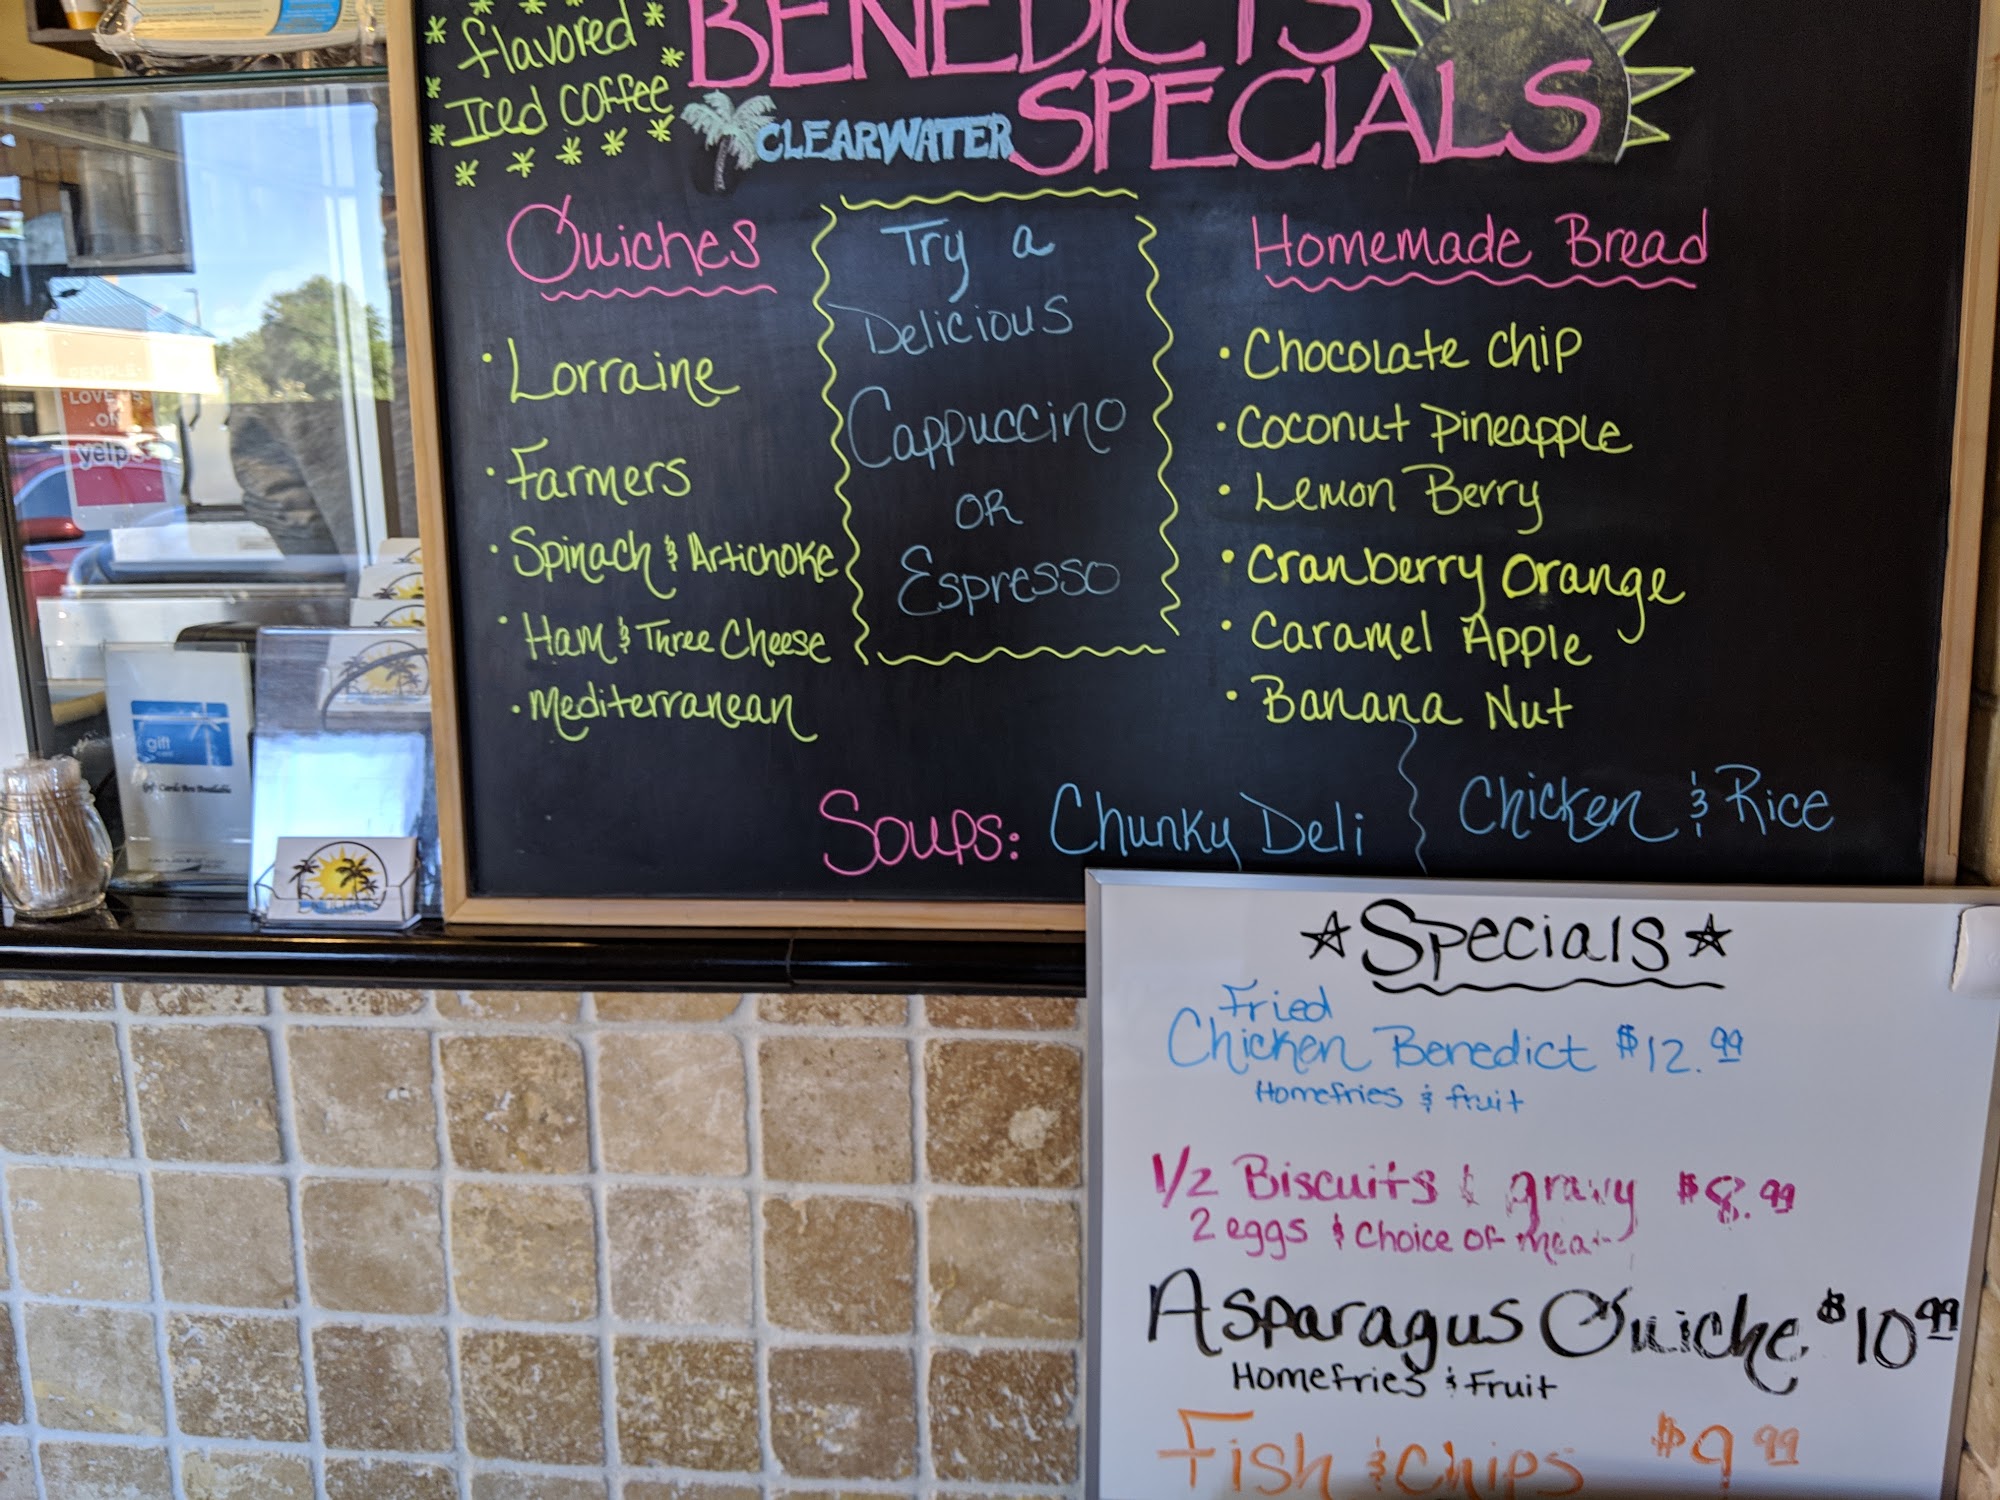 flavored
Iced coffee
BENEDICTS
CLEARWATER SPECIALS
Quiches
Lorraine
Farmers
Spinach & Artichoke
Ham & Three Cheese
Mediterranean
Try a
Delicious
Cappuccino
OR
Espresso
Homemade Bread
Chocolate Chip
Coconut Pineapple
Lemon Berry
Cranberry Orange
Caramel Apple
Banana Nut
Soups: Chunky Deli
Chicken & Rice
Specials
Fried
Chicken Benedict $12.99
Homefries & fruit
1/2 Biscuits & gravy $8.99
2 eggs & Choice of meat
Asparagus Quiche $10.99
Homefries & Fruit
Fish & Chips $9.99
PEOPLE
LOVE US
ON
yelp
gift